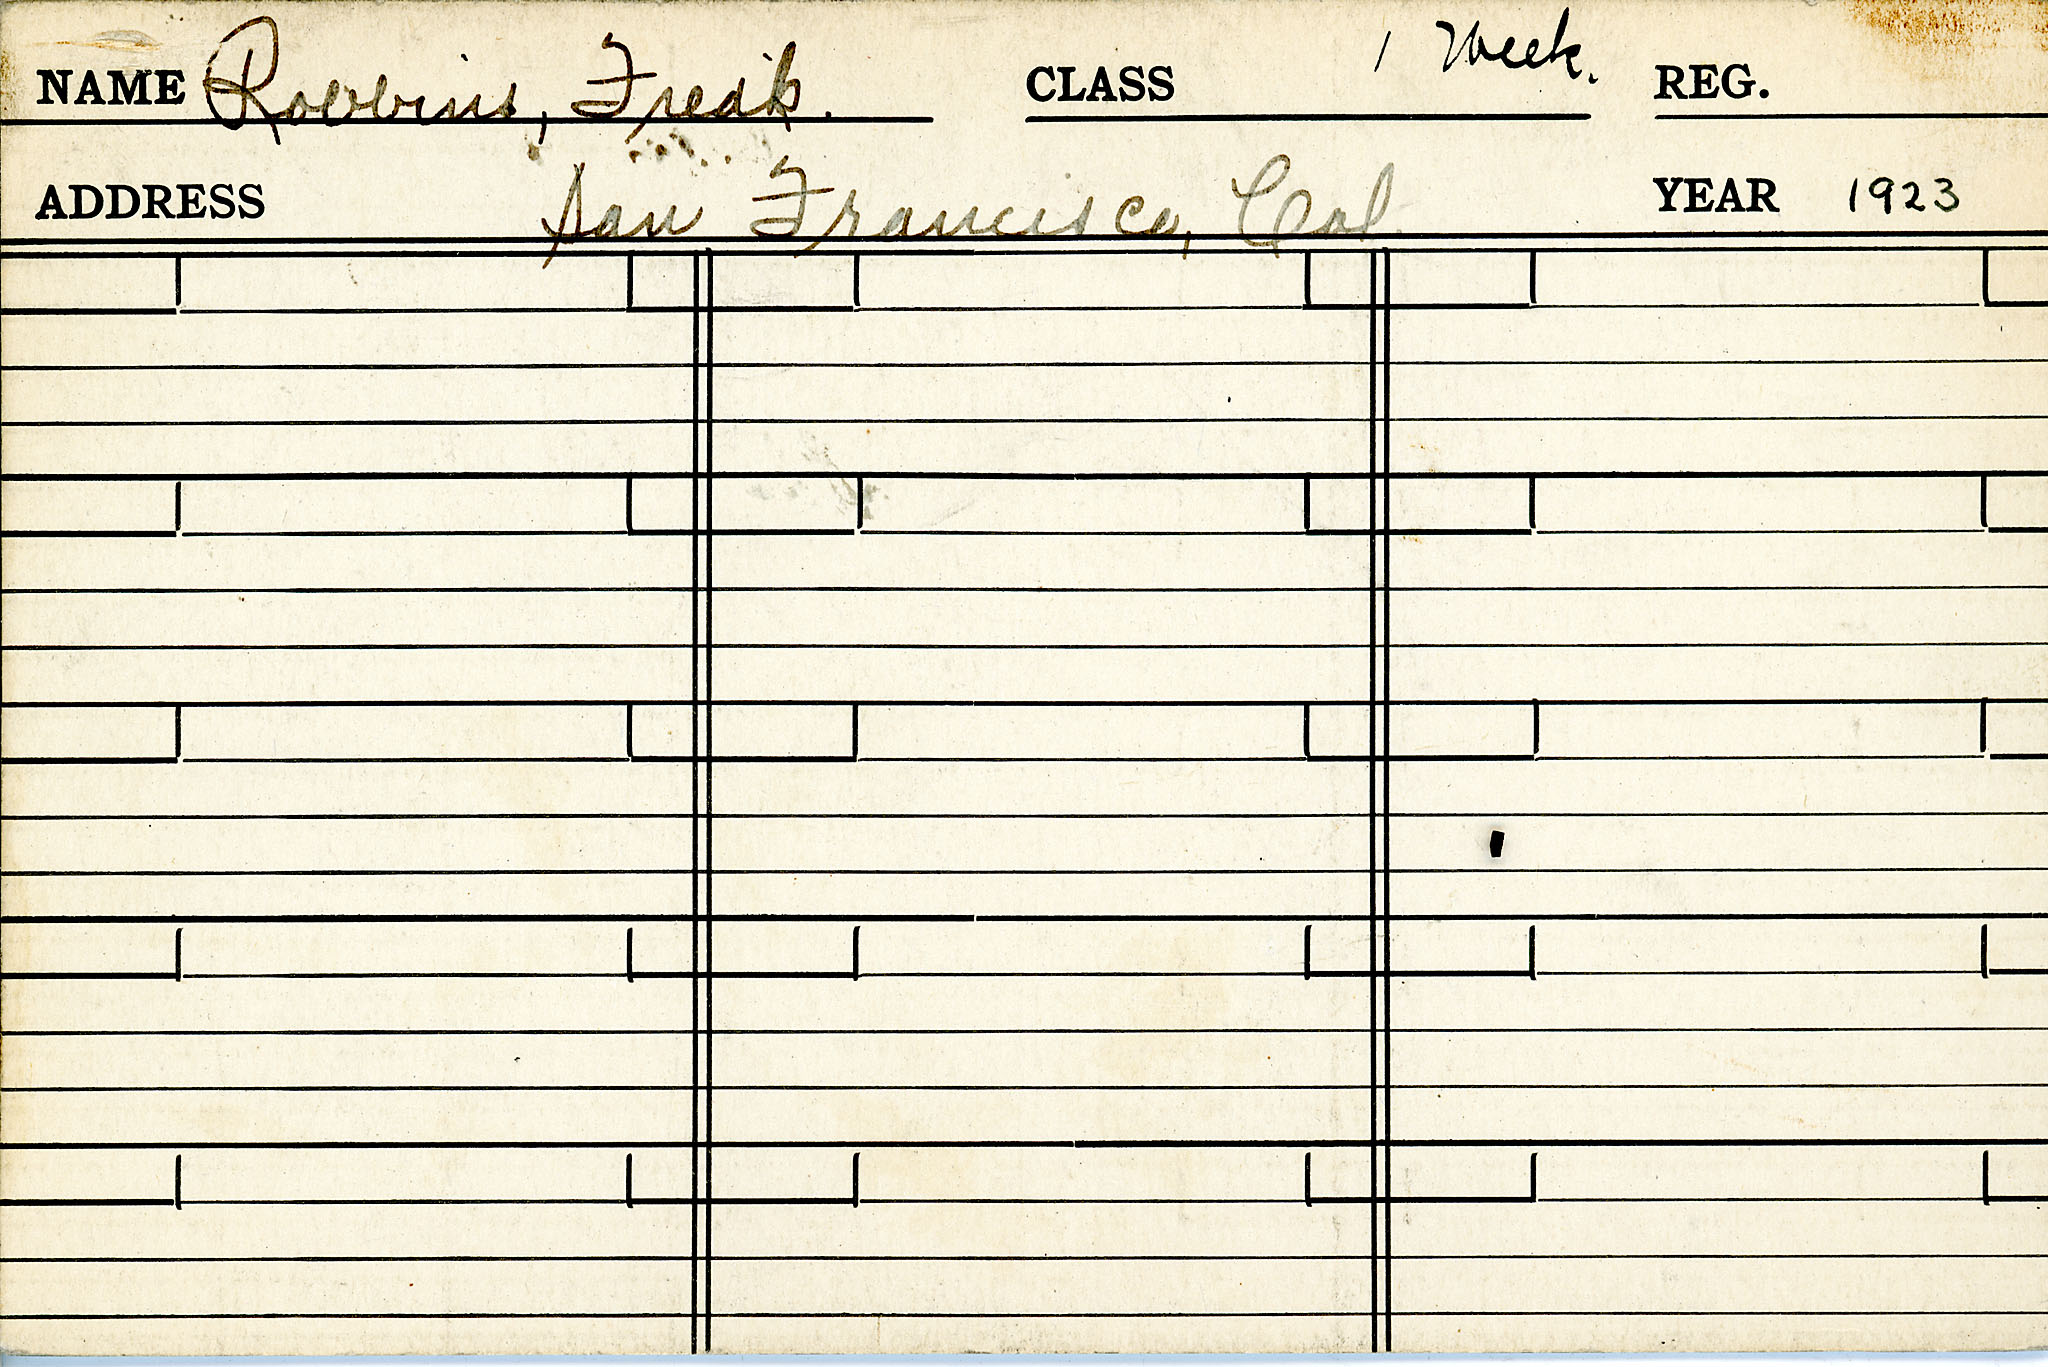 NAME Robbins, Fredk. CLASS 1 Week. REG.
ADDRESS San Francisco, Cal. YEAR 1923